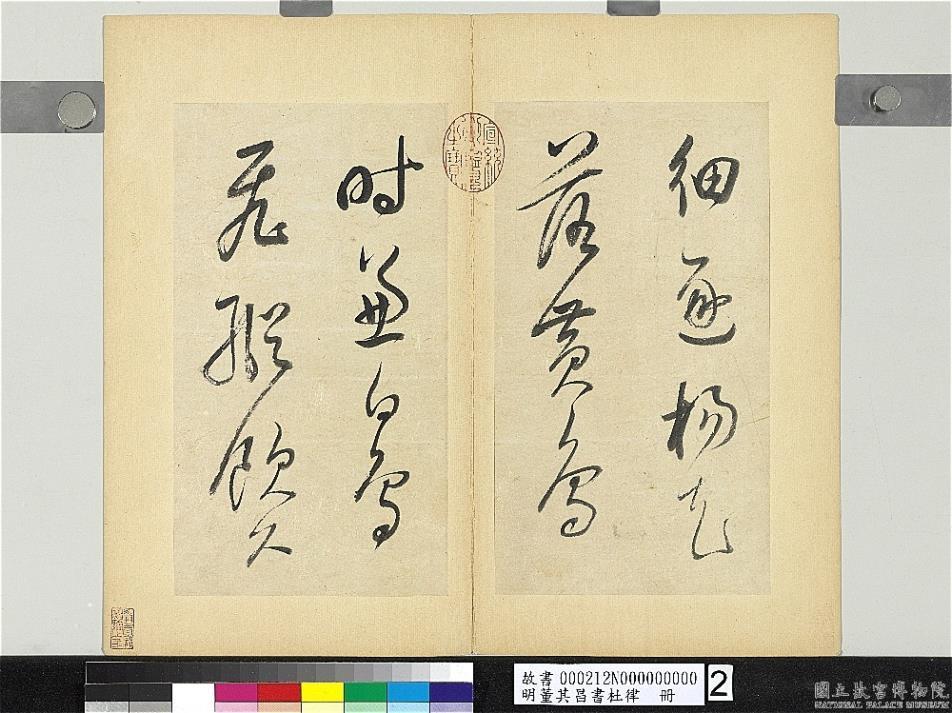 細逐楊花
落黃鳥
時兼白鳥
飛縱飲久
故書 000212N000000000
明董其昌書杜律 冊
2
國立故宮博物院
NATIONAL PALACE MUSEUM